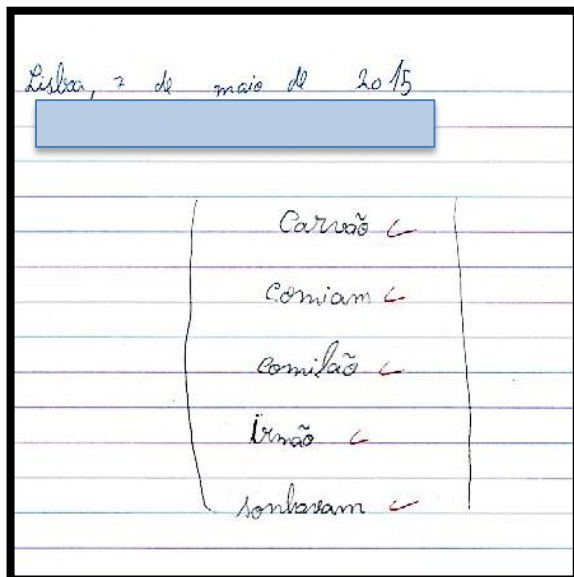 Lisboa, 7 de maio de 2015
Carvão
Comiam
Comilão
Irmão
sonhavam